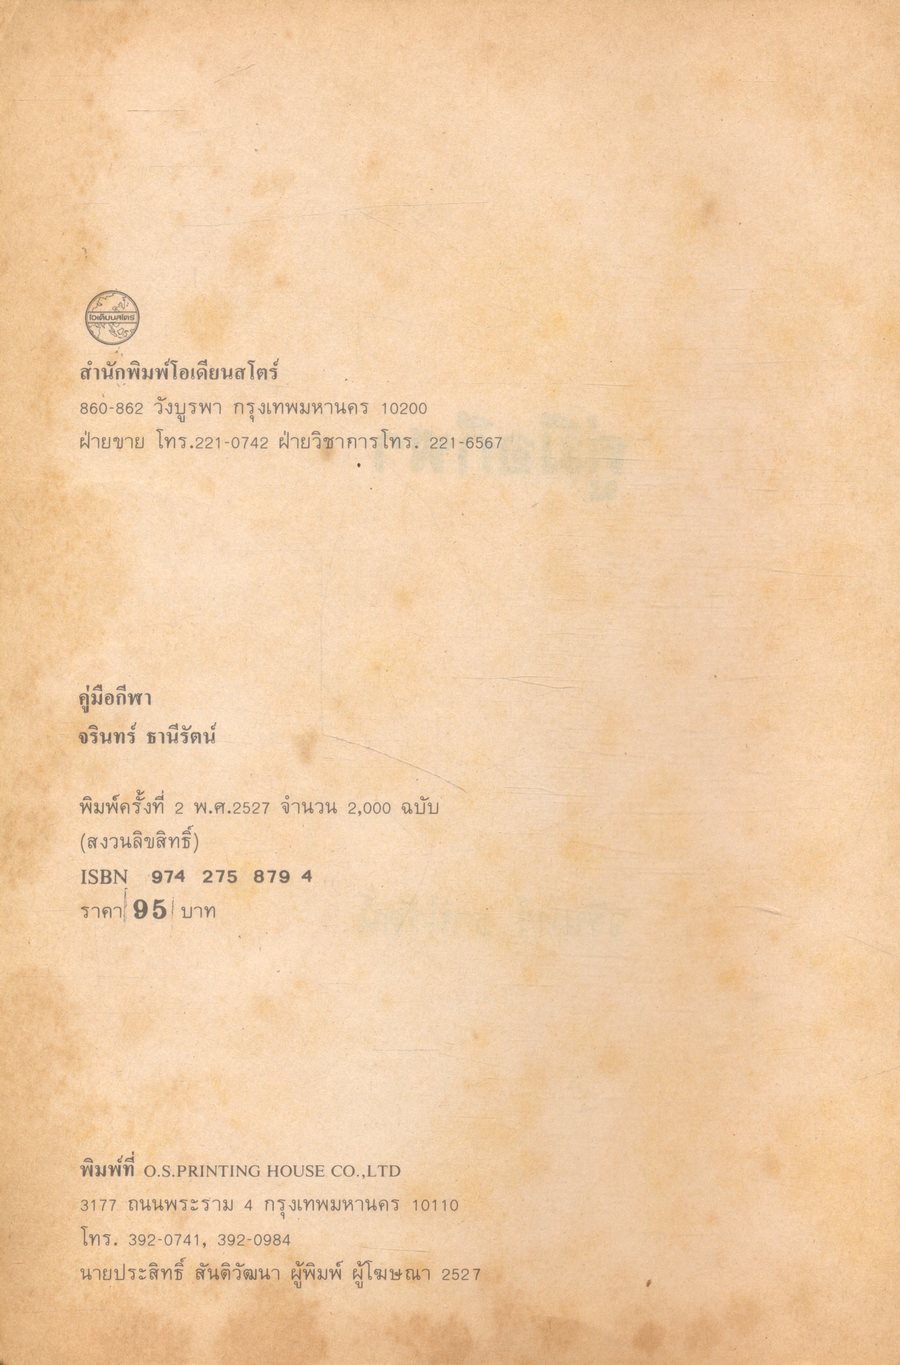 โอเดียนสโตร์
สำนักพิมพ์โอเดียนสโตร์
860-862 วังบูรพา กรุงเทพมหานคร 10200
ฝ่ายขาย โทร.221-0742 ฝ่ายวิชาการโทร. 221-6567
คู่มือกีฬา
จรินทร์ ธานีรัตน์
พิมพ์ครั้งที่ 2 พ.ศ.2527 จำนวน 2,000 ฉบับ
(สงวนลิขสิทธิ์)
ISBN 974 275 879 4
ราคา 95 บาท
พิมพ์ที่ O.S.PRINTING HOUSE CO.,LTD
3177 ถนนพระราม 4 กรุงเทพมหานคร 10110
โทร. 392-0741, 392-0984
นายประสิทธิ์ สันติวัฒนา ผู้พิมพ์ ผู้โฆษณา 2527